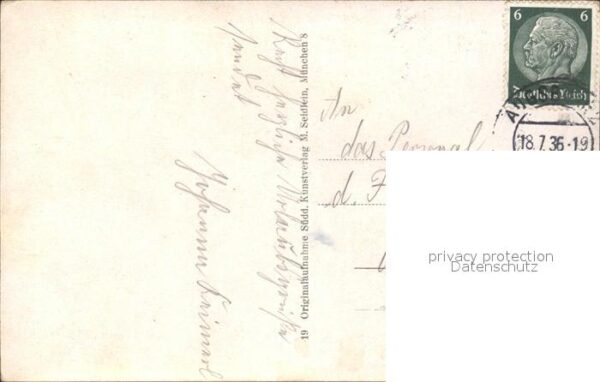 Recht herzliche Urlaubsgrüße
sendet
Johanna
19 Originalaufnahme Südd. Kunstverlag M. Seidlein, München 8
An
das Personal
d. F
6 6
Deutsches Reich
18.7.36-19
privacy protection
Datenschutz